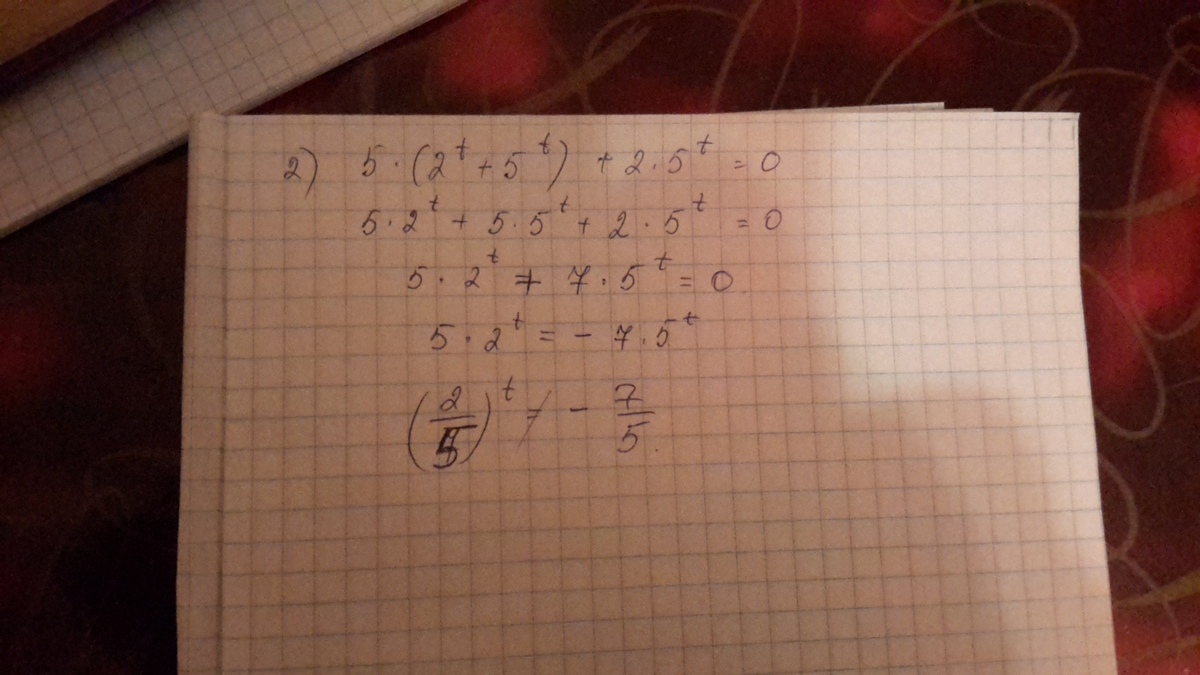 2) 5·(2^t + 5^t) + 2·5^t = 0
5·2^t + 5·5^t + 2·5^t = 0
5·2^t + 7·5^t = 0.
5·2^t = - 7·5^t
(2/5)^t ≠ - 7/5.